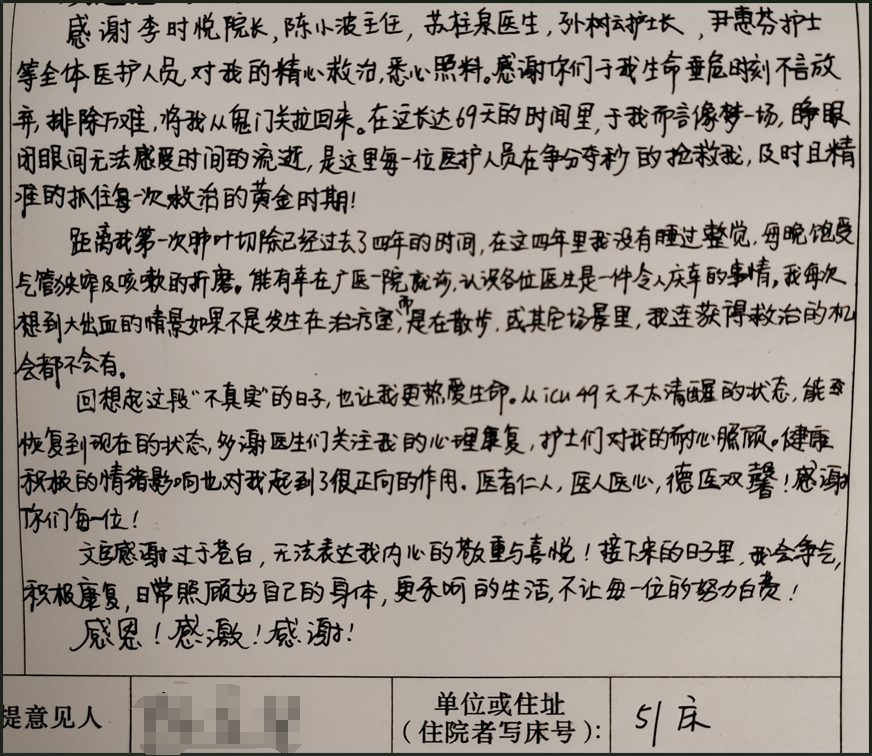 感谢李时悦院长,陈小波主任,苏柱泉医生,孙树云护士长,尹惠芬护士
等全体医护人员对我的精心救治,悉心照料。感谢你们于我生命垂危时刻不言放
弃,排除万难,将我从鬼门关拉回来。在这长达69天的时间里,于我而言像梦一场,睁眼
闭眼间无法感受时间的流逝,是这里每一位医护人员在争分夺秒的抢救我,及时且精
准的抓住每一次救治的黄金时期!
距离我第一次肺叶切除已经过去了四年的时间,在这四年里我没有睡过整觉,每晚饱受
气管狭窄及咳嗽的折磨。能有幸在广医一院就诊,认识各位医生是一件令人庆幸的事情。我每次
想到大出血的情景如果不是发生在治疗室,而是在散步,或其它场景里,我连获得救治的机
会都不会有。
回想起这段"不真实"的日子,也让我更热爱生命。从icu49天不太清醒的状态,能
恢复到现在的状态,多谢医生们关注我的心理康复,护士们对我的耐心照顾。健康
积极的情绪影响也对我起到了很正向的作用。医者仁人,医人医心,德医双馨!感谢
你们每一位!
文字感谢过于苍白,无法表达我内心的敬重与喜悦!接下来的日子里,我会争气,
积极康复,日常照顾好自己的身体,更系呵的生活,不让每一位的努力白费!
感恩!感激!感谢!
提意见人
单位或住址
(住院者写床号):
51床